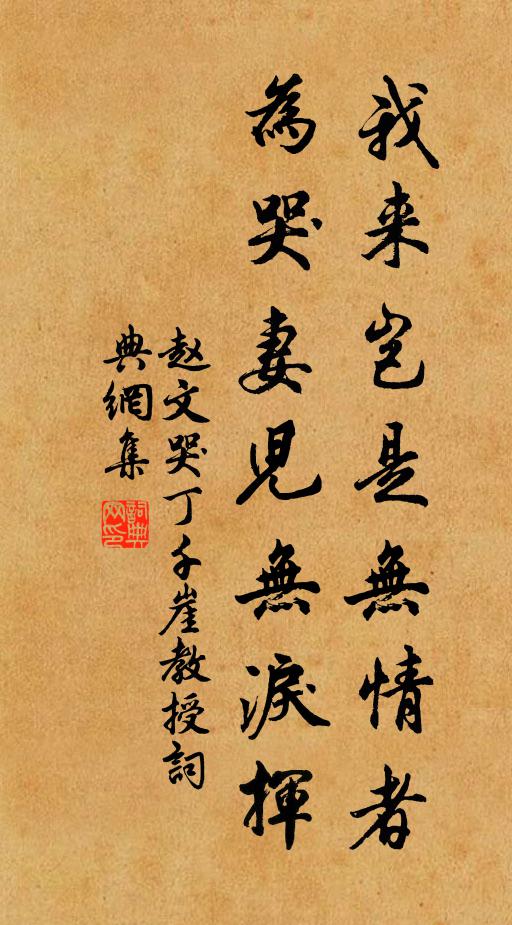 我来岂是無情者
為哭妻児無淚揮
赵文哭丁千崖教授詞
典網集
詞典
网印